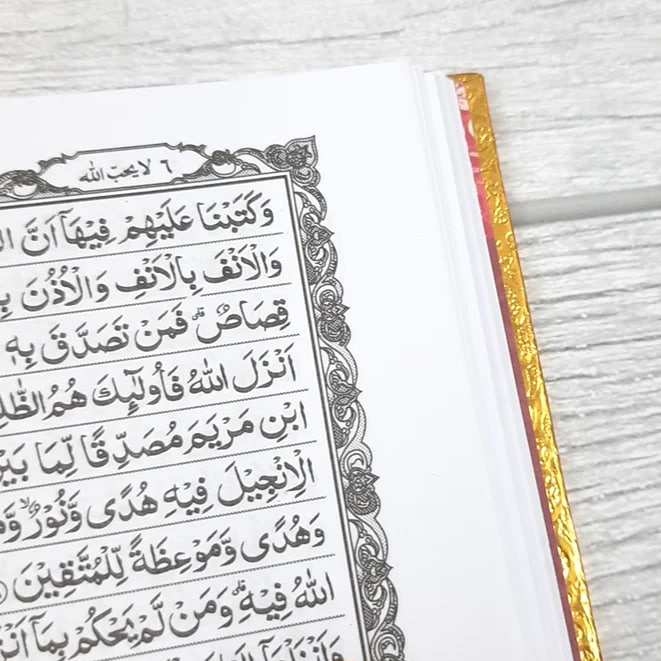 لا يحبّ الله ٦
وَكَتَبْنَا عَلَيْهِمْ فِيْهَآ اَنَّ
وَالْاَنْفَ بِالْاَنْفِ وَالْاُذُنَ
قِصَاصٌۗ فَمَنْ تَصَدَّقَ بِهٖ
اَنْزَلَ اللّٰهُ فَاُولٰۤىِٕكَ هُمُ
ابْنِ مَرْيَمَ مُصَدِّقًا لِّمَا
الْاِنْجِيْلَ فِيْهِ هُدًى وَّنُوْرٌۙ
وَهُدًى وَّمَوْعِظَةً لِّلْمُتَّقِيْنَ
اللّٰهُ فِيْهِۗ وَمَنْ لَّمْ يَحْكُمْ بِمَآ